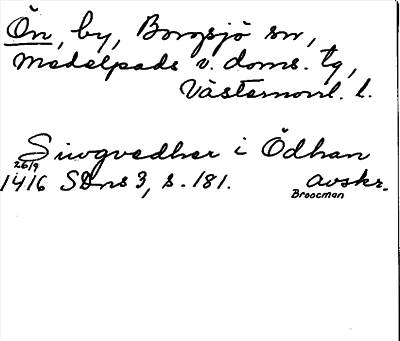 Ön, by, Borgsjö sn,
Medelpads v. doms. tg,
Västernorrl. l.
Siwgvedher i Ödhan
26/9
1416 SDns 3, s. 181. avskr.
Broocman